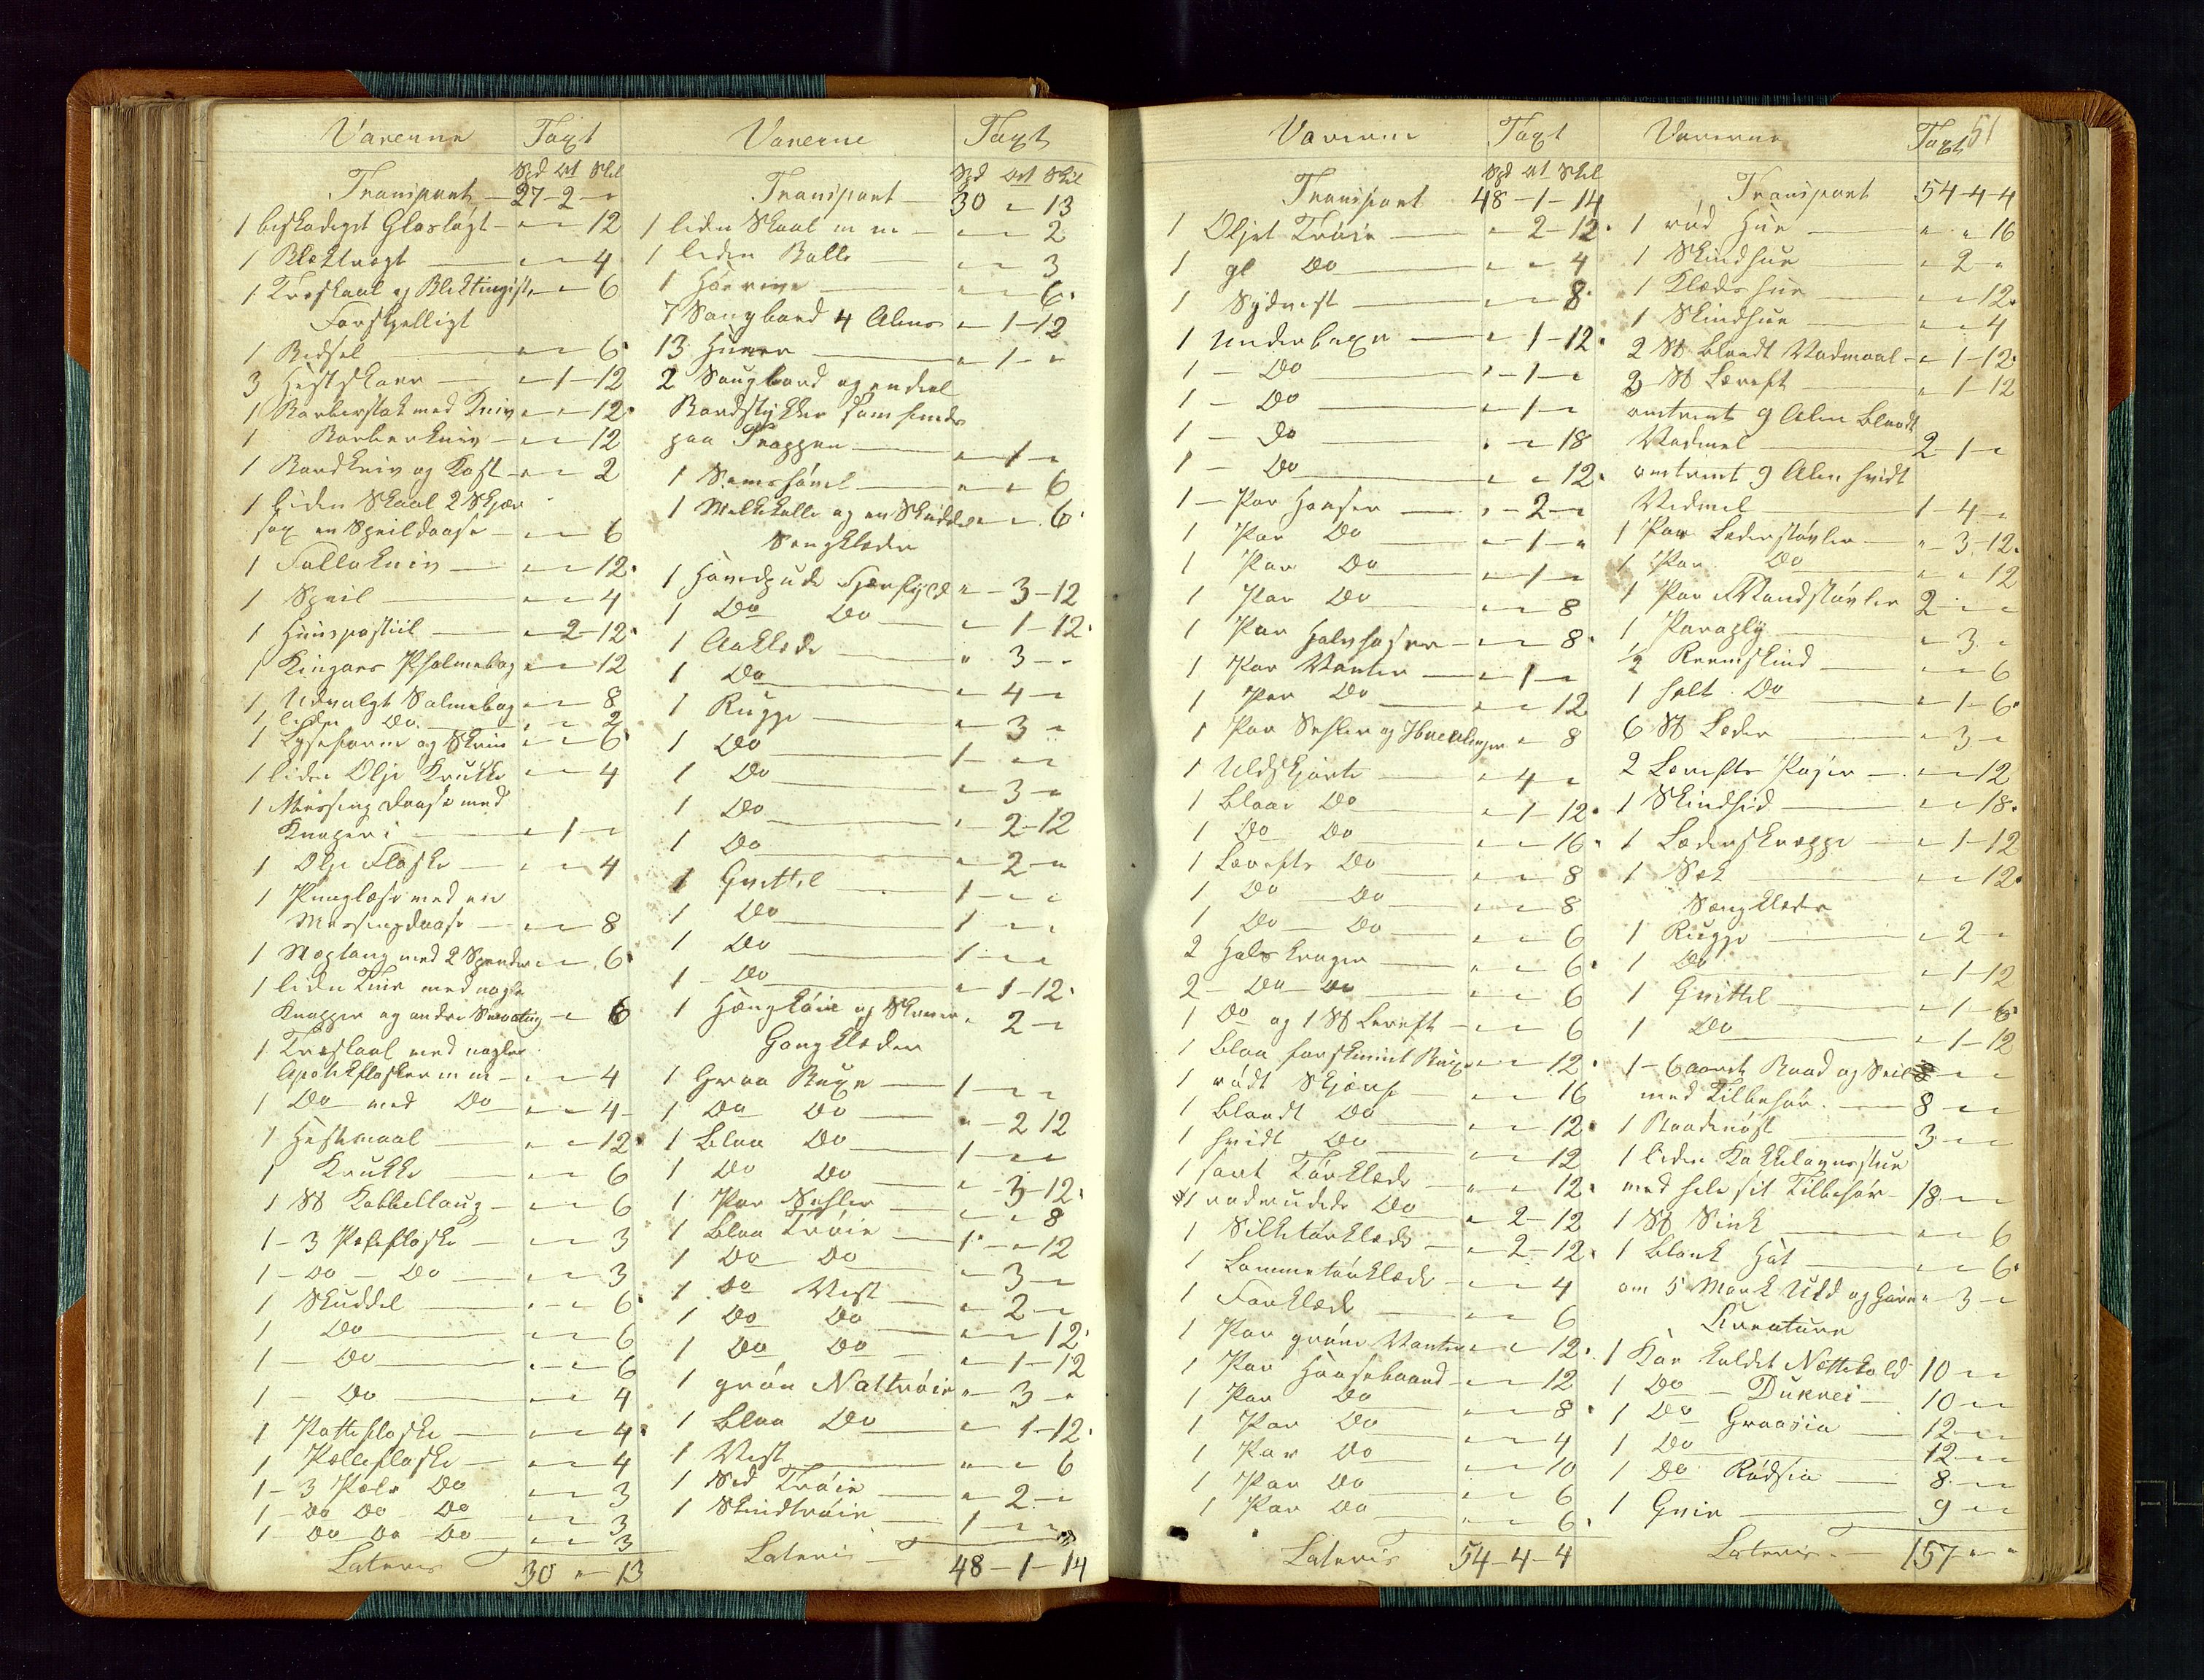 Varerne Taxt
Spd Ort Skil
Transport 27-2-"
1 beskadiget Glasløgt - " - " 12
1 Blektregt - " - " 4
1 Træskaal og - " - " 6
Forskjelligt
1 Bidsel - " - " 6
3 Hestskoer - " - 1 - 12
1 Barberstok med Kniv " - " 12
1 Barberkniv - " - " 12
1 Baandkniv og Kost - " - " 2
1 liden Skaal 2 Skjær
sax en Speildaase - " - " 6
1 Follekniv - " - " 12
1 Speil - " - " 4
1 Huuspostiil - " - 2 - 12
1 Kingoes Psalmebog " - " 12
1 Udvalgt Salmebog " - " 8
1 liden Do " - " 2
1 Lyseform og Skrin " - " 6
1 liden Olje Krukke " - " 4
1 Messing Daase med
Knapper i - " - 1 - "
1 Olje Flaske - " - " 4
1 med en
Messingdaase - " - " 8
1 med 2 " - " 6
1 liden med nogle
Knapper og andre " 6
1 Træskaal med nogle
Apothekflasker m m - " - " 4
1 Do med Do - " - " 4
1 Hestemaal - " - " 12
1 Krukke - " - " 6
1 St Kabbeltaug - " - " 6
1 - 3 Pæleflaske - " - " 3
1 - Do - Do - " - " 3
1 Skuddel - " - " 6
1 Do - " - " 6
1 - Do - " - " 6
1 - Do - " - " 4
1 Potteflaske - " - " 4
1 Pælleflaske - " - " 4
1 - 3 Pæle Do - " - " 3
1 - Do Do Do - " - " 3
1 - Do Do Do - " - " 3
Lateris 30 " 13
Varerne Taxt
Spd Ort Skil
Transport 30 " 13
1 liden Skaal m m - " - " 2
1 liden Balle - " - " 3
1 Hørive - " - " 6
7 Sangbord 4 Alens " - 1 - 12
13 Huner - " - 1 - "
2 Saugbord og endeel
Bordstykker som findes
paa Trappen - " - 1 - "
1 - " - " 6
1 Melkekolle og en Skuddel " - " 6
Sengklæder
1 Hovedpude Fjærfyld " - 3 - 12
1 Do Do - " - 1 - 12
1 Aaklæde - " 3 - "
1 Do - " - 4 - "
1 Rugge - " - 3 - "
1 Do 1 - " - "
1 Do - " - 3 - "
1 Do - " - 2 - 12
1 Do - " - 2 - "
1 Gvittel 1 - " - "
1 Do 1 - " - "
1 Do 1 - " - "
1 - Do - " - 1 - 12
1 og " 2 - "
Gangklæder
1 Graa Buxe 1 - " - "
1 Do Do - " - 2 12
1 Blaa Do 1 - " - "
1 Do Do - " - 3 - 12
1 Par - " - " 8
1 Blaa Trøie 1 - " - 12
1 Do Do - " - 3 - "
1 Do Vest - " - 2 - "
1 Do Do - " - " 12
1 Do Do - " - 1 - 12
1 grøn Nattrøie " - 3 - "
1 Blaa Do - " - 1 - 12
1 Vest - " - " 6
1 Trøie - " - 2 - "
1 Skindtrøie 1 - " - "
Lateris 48 - 1 - 14
Varerne Taxt
Spd Ort Skil
Transport 48 - 1 - 14
1 Oljet Trøie - " 2 - 12
1 gl Do - " - " 4
1 Sydvest - " - " 8
1 Underbuxe - " - 1 - 12
1 - Do - " - 1 - "
1 - Do - " - 1 - "
1 - Do - " - " 18
1 - Do - " - " 12
1 - Par Hoser - " - 2 - "
1 Par Do - " - 1 - "
1 Par Do - " - 1 - "
1 Par Do - " - " 8
1 Par Halvhoser - " - " 8
1 Par Vanter - " - 1 - "
1 Par Do - " - " 12
1 Par og " - " 8
1 Uldskjorte - " 4 - "
1 Blaae Do - " - 1 - 12
1 Do Do - " - " 16
1 Lerefts Do - " - " 8
1 Do Do - " - " 8
1 Do Do - " - " 6
2 Halskruger - " - " 6
2 - Do Do - " - " 6
1 Do og 1 St Lereft - " - " 6
1 blaa Buxe - " - " 12
1 rødt Skjørte - " - " 16
1 Blaadt Do - " - " 12
1 hvidt Do - " - " 12
1 sort Tørklæde - " - " 12
1 rødrudede Do - " - 2 - 12
1 Silketørklæde - " - 2 - 12
1 Lommetørklæde - " - " 4
1 Forklæde - " - " 6
1 Par grønne Vanter - " - " 12
1 Par Hosebaand - " - " 12
1 Par Do - " - " 8
1 Par Do - " - " 4
1 Par Do - " - " 10
1 Par Do - " - " 6
1 Par Do - " - " 6
Lateris 54 - 4 - 4
Varerne Taxt 51
Transport 54 - 4 - 4
1 rød Hue - " " 16
1 Skindhue - " 2 - "
1 Klædeshue - " - " 12
1 Skindhue - " - " 4
2 St blaadt Vadmaal - " - 1 - 12
3 St Læreft - " - 1 - 12
omtrent 9 Alen blaadt
Vadmel 2 - 1 - "
omtrent 9 Alen hvidt
Vadmel 1 - 4 - "
1 Par Læderstøvler - " - 3 - 12
1 Par Do - " - " 12
1 Par Mandstøvler 2 - " - "
1 Paraply - " - 3 - "
1/2 Reemskind - " - " 6
1 helt Do - " - 1 - 6
6 St Læder - " - 3 - "
2 Lærefts Poser - " - " 12
1 Skindhid - " - " 18
1 Læderskræppe - " - 1 - 12
1 Sæk - " - " 12
Sengklæder
1 Rugge - " - 2 - "
1 Do - " - 1 - 12
1 Gvittel - " - 1 - 6
1 Do - " - 1 - 12
1 - 6 aaret Baad og Seil - " - "
med Tilbehør 8 - " - "
1 Baadenøst 3 - " - "
1 liden Kakkelovnsstue
med hele sit Tilbehør 18 - " - "
1 St Sink - " - " 6
1 Blank Hat - " - " 6
om 5 Mark Uld og Garn " - 3 - "
Creature
1 Koe kaldet 10 - " - "
1 Do - Dukrei 10 - " - "
1 Do Graasia 12 - " - "
1 Do 12 - " - "
1 Do Rødsia 8 - " - "
1 Gvie 9 - " - "
Lateris 157 - " - "